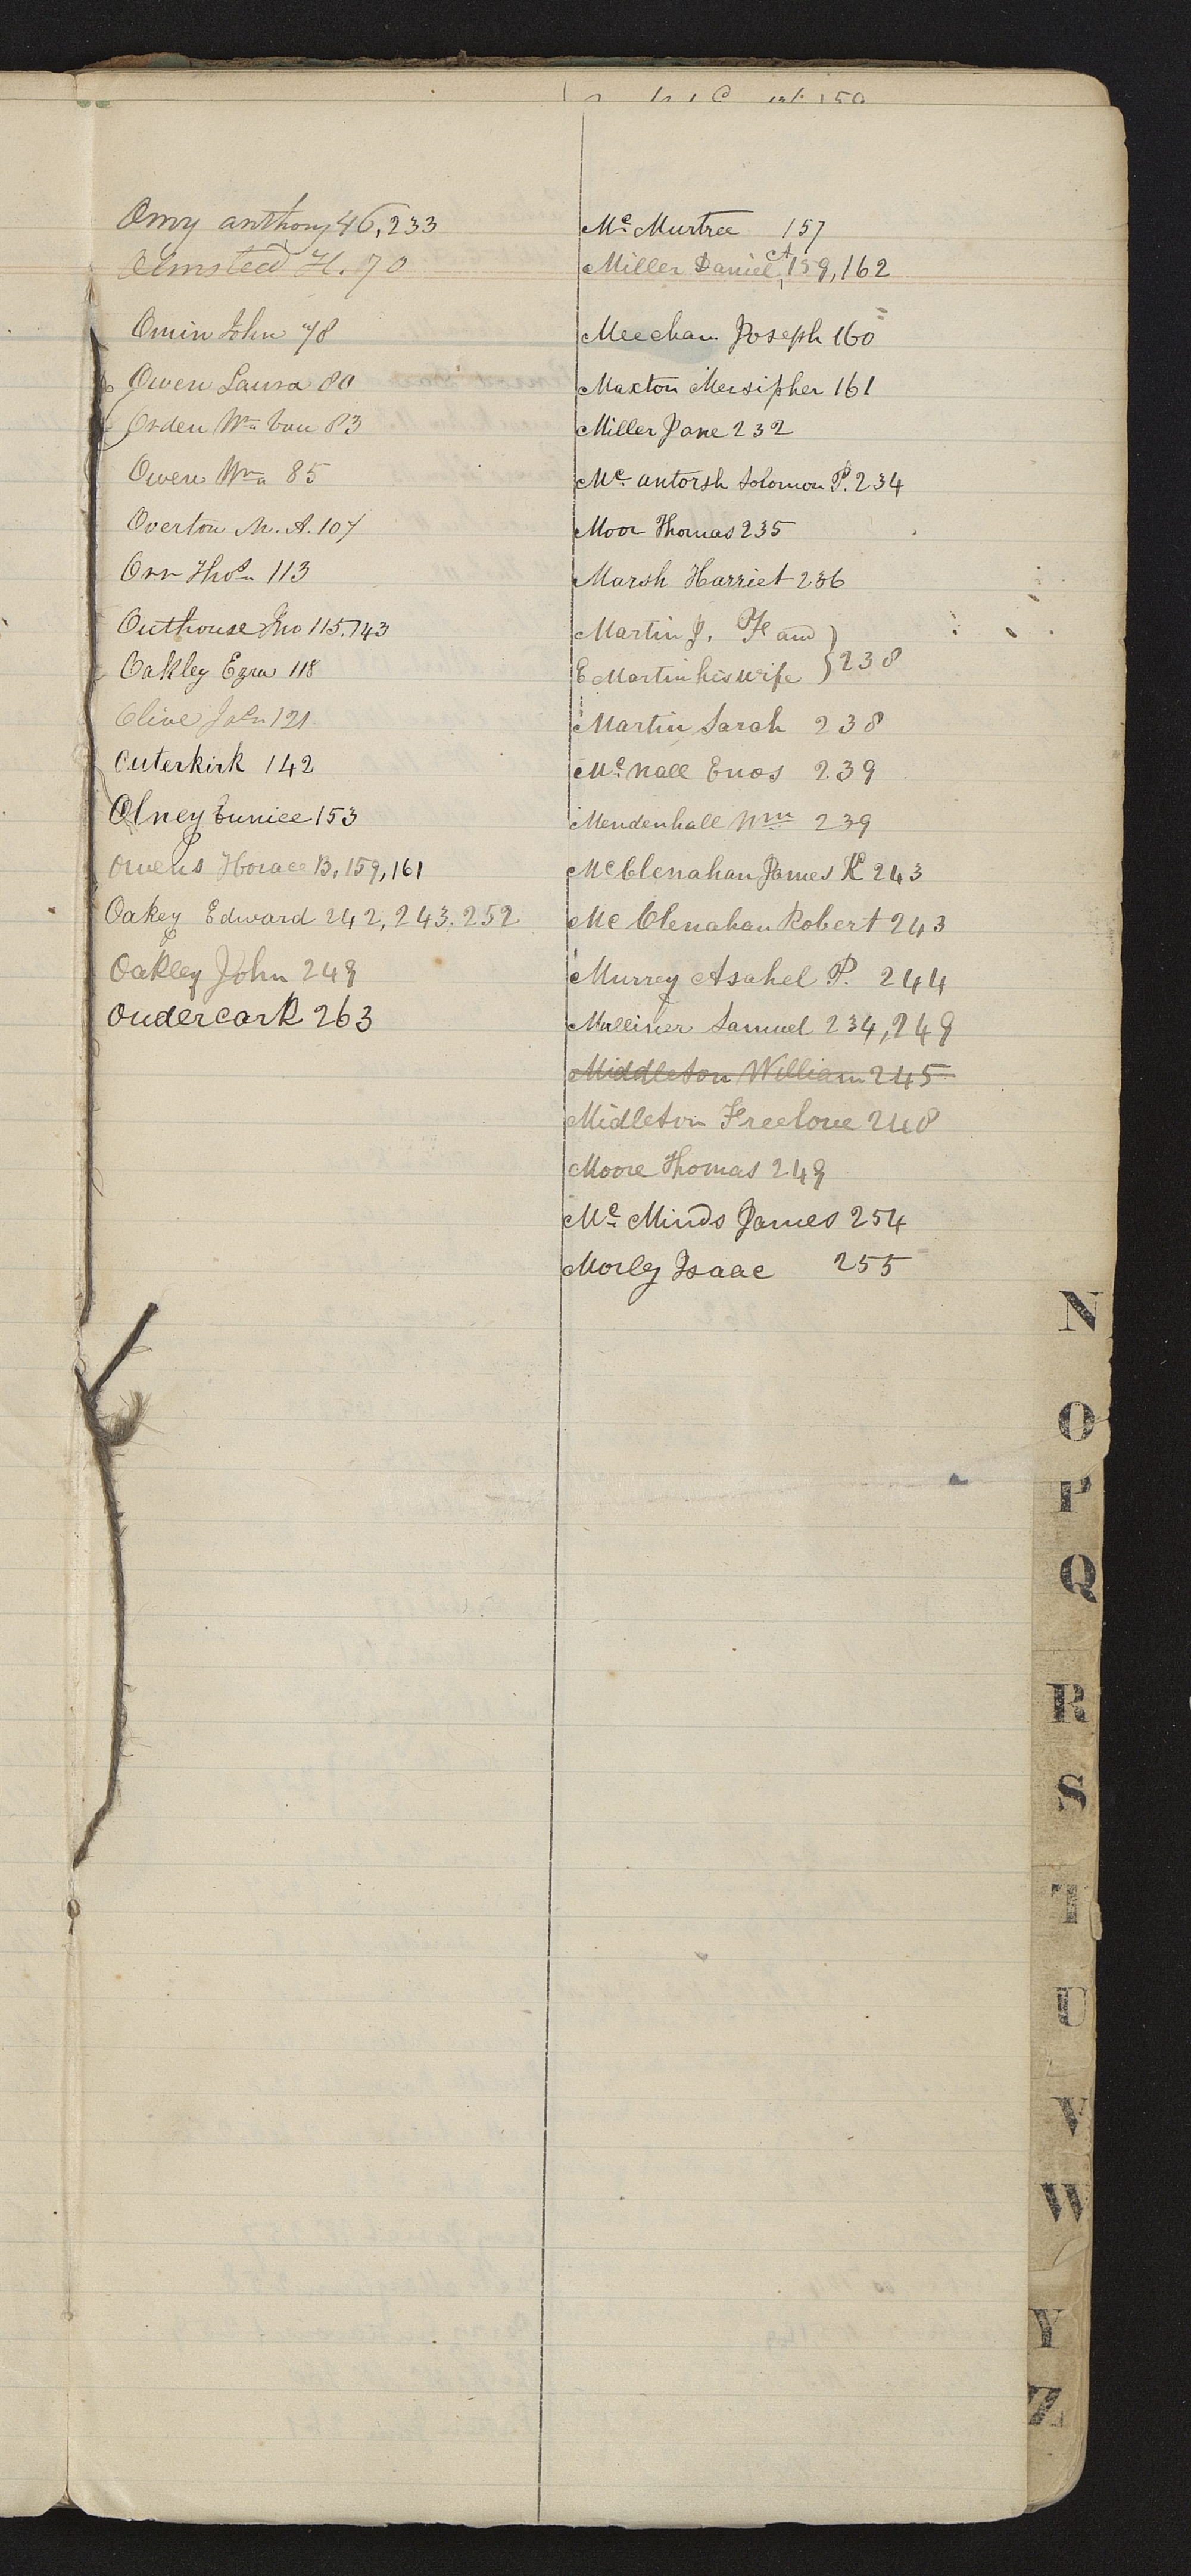 Omy anthony 46, 233
Olmsted H. 70
Omin John 78
Owen Laura 80
Orden Wm Van 83
Owen Wm 85
Overton M. A. 107
Orr Thos 113
Outhouse Jno 115. 143
Oakley Ezra 118
Olive Jn 121
Outerkirk 142
Olney Eunice 153
Owens Horace B, 159, 161
Oakey Edward 242, 243. 252
Oakley John 249
Oudercark 263
Mc Murtree 157
Miller Daniel A, 159, 162
Meecham Joseph 160
Maxton Mersipher 161
Miller Jane 232
Mc antorsh Solomon P. 234
Moor Thomas 235
Marsh Harriet 236
Martin J. F and
E Martin his wife } 238
Martin Sarah 238
Mc nall Enos 239
Mendenhall Wm 239
McClenahan James K 243
Mc Clenahan Robert 243
Murrey Asahel P. 244
Mulliner Samuel 234, 249
Middleton William 245
Midleton Freelove 248
Moore Thomas 249
Mc Minds James 254
Morley Isaac 255
N
O
P
Q
R
S
T
U
V
W
Y
Z